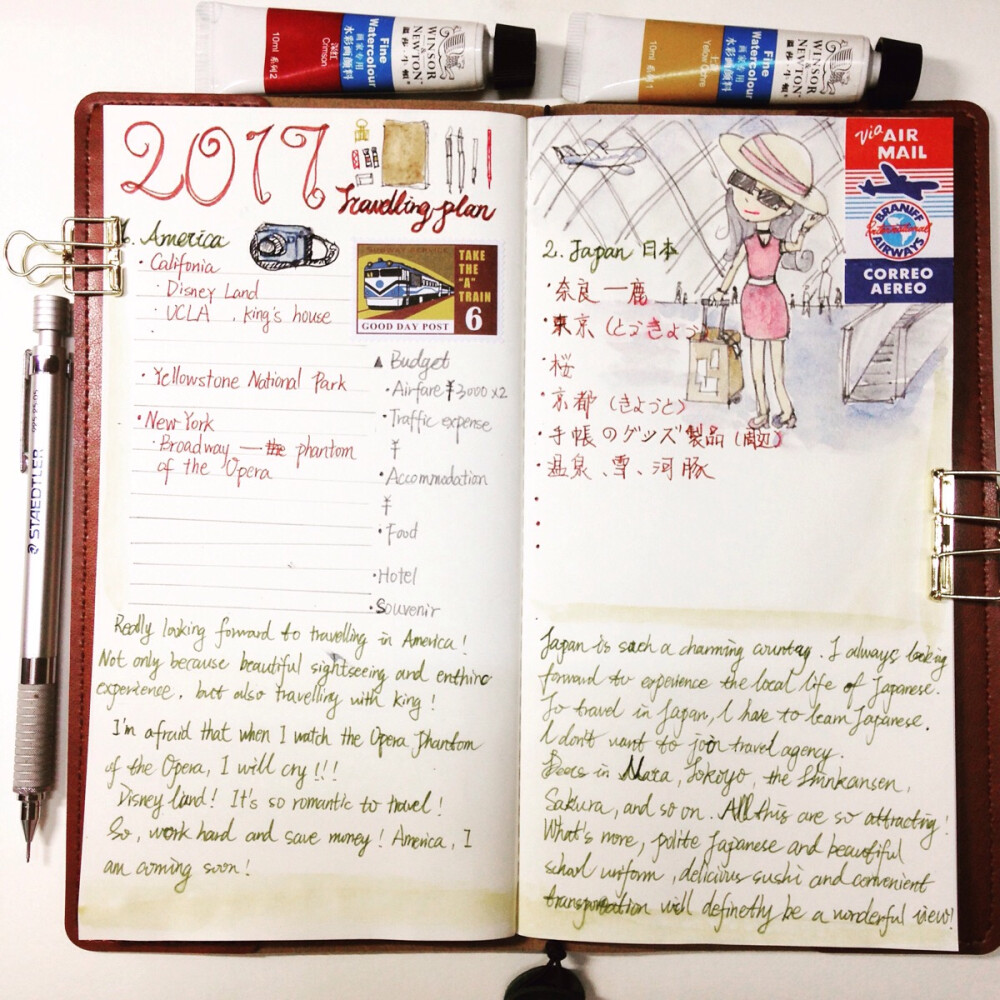 WINSOR
NEWTON
温莎·牛顿
Fine
Watercolour
画家专用
水彩画颜料
深红
Crimson
10ml 系列2
WINSOR
NEWTON
温莎·牛顿
Fine
Watercolour
画家专用
水彩画颜料
Yellow Ochre
10ml 系列1
STAEDTLER
2017
Travelling plan
1. America
· Califonia
· Disney Land
· UCLA , king's house
· Yellowstone National Park
· New York
· Broadway — the phantom
of the Opera
SUBWAY SERVICE
TAKE
THE
"A"
TRAIN
GOOD DAY POST
6
▲ Budget
· Airfare ¥3000 x2
· Traffic expense
¥
· Accommodation
¥
· Food
· Hotel
· Souvenir
Really looking forward to travelling in America!
Not only because beautiful sightseeing and enthinc
experience, but also travelling with king!
I'm afraid that when I watch the Opera Phantom
of the Opera, I will cry!!!
Disney land! It's so romantic to travel!
So, work hard and save money! America, I
am coming soon!
Via AIR
MAIL
BRANIFF
International
AIRWAYS
CORREO
AEREO
2. Japan 日本
· 奈良 — 鹿
· 東京 (とうきょう)
· 桜
· 京都 (きょうと)
· 手帳のグッズ製品 (周边)
· 温泉、雪、河豚
Japan is such a charming countay. I always looking
forward to experience the local life of Japanese.
To travel in Japan, I have to learn Japanese.
I don't want to join travel agency.
Deers in Nara, Tokoyo, the Shinkansen,
Sakura, and so on. All this are so attracting!
What's more, polite Japanese and beautiful
school uniform, delicious sushi and convenient
transportation will definetly be a wonderful view!